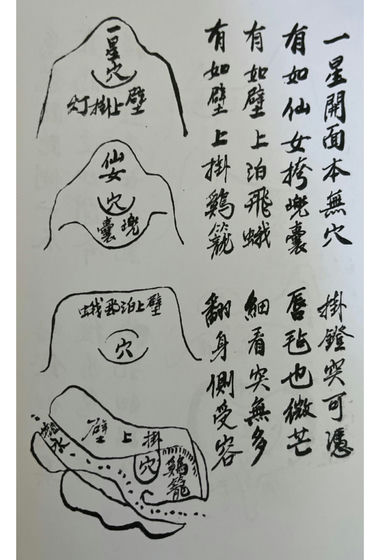 一星開面本無穴　掛鐙突可憑
有如仙女挎兜囊　唇毡也微茫
有如壁上泊飛蛾　細看突無多
有如壁上掛鷄籠　翻身側受容
一星穴
灯掛上壁
仙女
穴
囊兜
蛾飛泊上壁
穴
壁上掛
穴
鷄籠